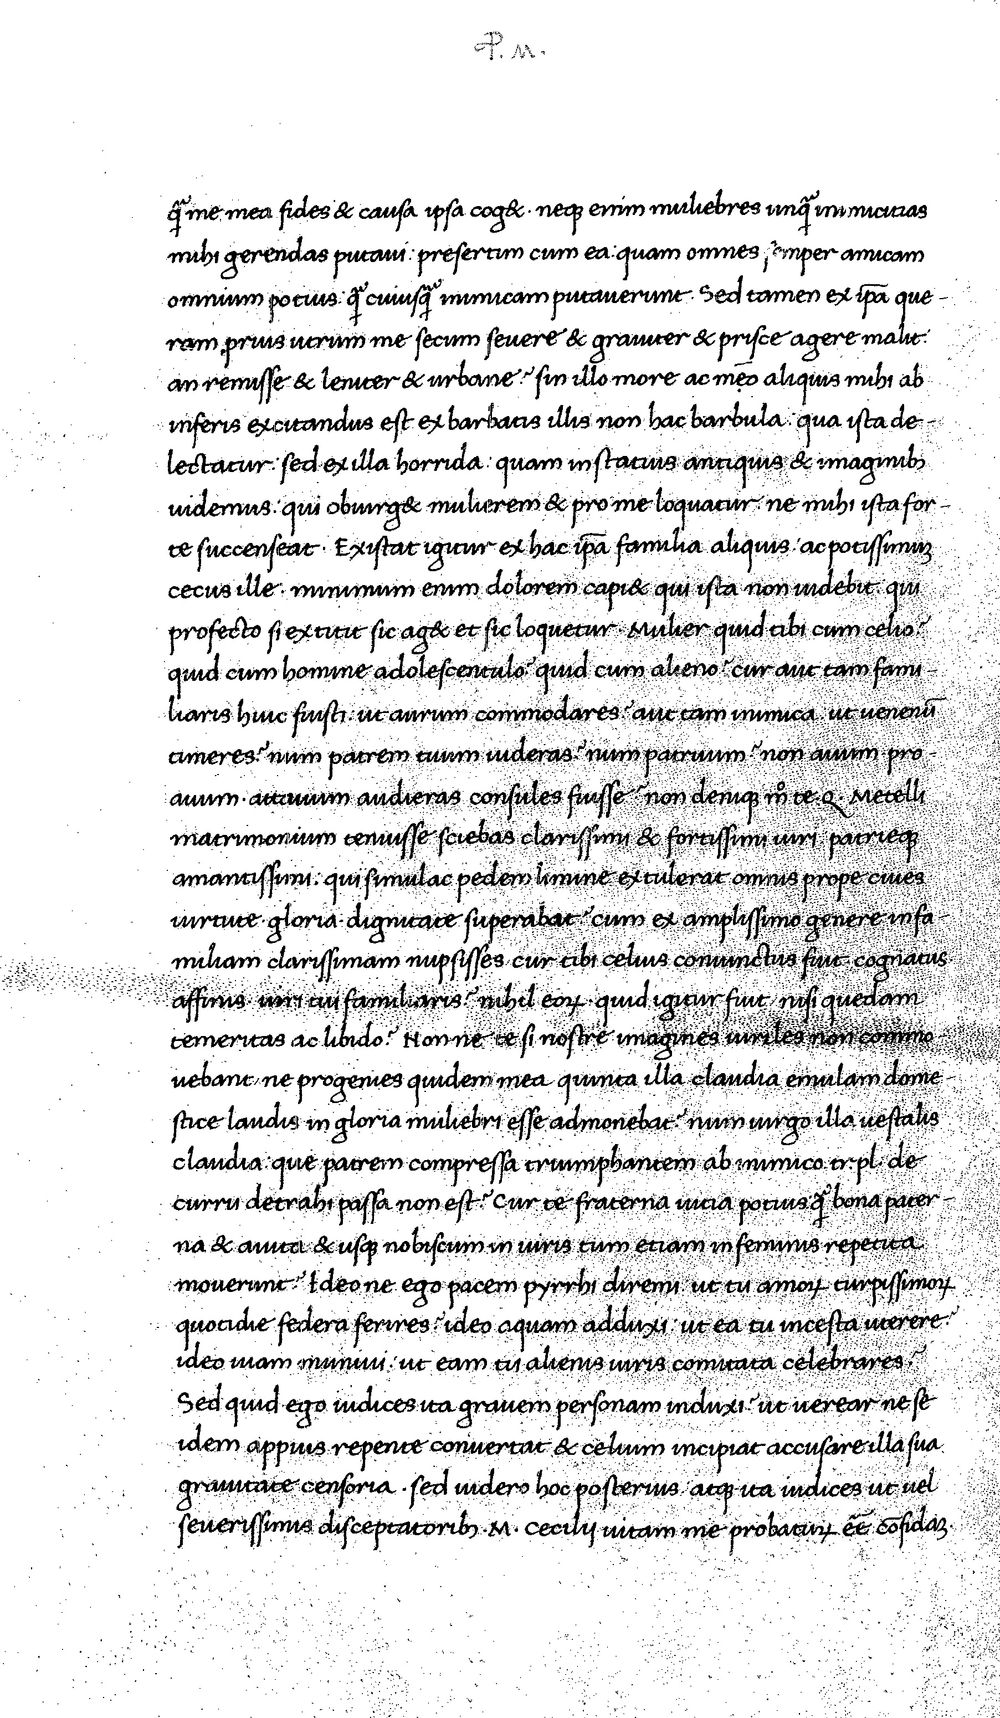 P. M.
q̄ me mea fides & causa ipsa cog&. neqꝫ enim muliebres unq̄ inimicitias
mihi gerendas putaui: presertim cum ea: quam omnes semper amicam
omnium potius q̄ cuiusq̄ inimicam putauerunt. Sed tamen ex ip̄a que-
ram prius utrum me secum seuere & grauiter & prisce agere malit:
an remisse & leniter & urbane? sin illo more ac mēo aliquis mihi ab
inferis excitandus est ex barbatis illis non hac barbula: qua ista de-
lectatur: sed ex illa horrida: quam in statuis antiquis & imaginibꝫ
uidemus: qui obiurg& mulierem & pro me loquatur: ne mihi ista for-
te succenseat. Existat igitur ex hac ip̄a familia aliquis: ac potissimuꝫ
cecus ille. minimum enim dolorem capi& qui ista non uidebit: qui
profecto si extitit sic ag& et sic loquetur. Mulier quid tibi cum celio?
quid cum homine adolescentulo? quid cum alieno? cur aut tam fami-
liaris huic fuisti: ut aurum commodares? aut tam inimica: ut uenenū
timeres? num patrem tuum uideras? num patruum? non auum pro-
auum. attauum audieras consules fuisse? non deniqꝫ m̊ te Q. Metelli
matrimonium tenuisse sciebas clarissimi & fortissimi uiri patrieqꝫ
amantissimi: qui simulac pedem limine extulerat omnis prope ciues
uirtute. gloria. dignitate superabat? cum ex amplissimo genere in fa-
miliam clarissimam nupsisses cur tibi celius coniunctus fuit. cognatus
affinis uiri tui familiaris? nihil eoꝝ. quid igitur fuit nisi quedam
temeritas ac libido? Non ne te si nostre imagines uiriles non commo-
uebant, ne progenies quidem mea quinta illa claudia emulam dome-
stice laudis in gloria muliebri esse admonebat? num uirgo illa uestalis
claudia: que patrem compressa triumphantem ab inimico tr. pl. de
curru detrahi passa non est? Cur te fraterna uicia potius q̄ bona pater-
na & auita & usqꝫ nobiscum in uiris tum etiam in feminis repetita
mouerunt? Ideo ne ego pacem pyrrhi diremi ut tu amoꝝ turpissimoꝝ
quotidie federa ferires? ideo aquam adduxi: ut ea tu incesta uterere?
ideo uiam muniui: ut eam tu alienis uiris comitata celebrares?
Sed quid ego iudices ita grauem personam induxi? ut uerear ne se
idem appius repente conuertat & celium incipiat accusare illa sua
grauitate censoria. sed uidero hoc posterius. atqꝫ ita iudices ut uel
seuerissimis disceptatoribꝫ M. Cecilij uitam me probatuꝝ eē cōfidaꝫ.